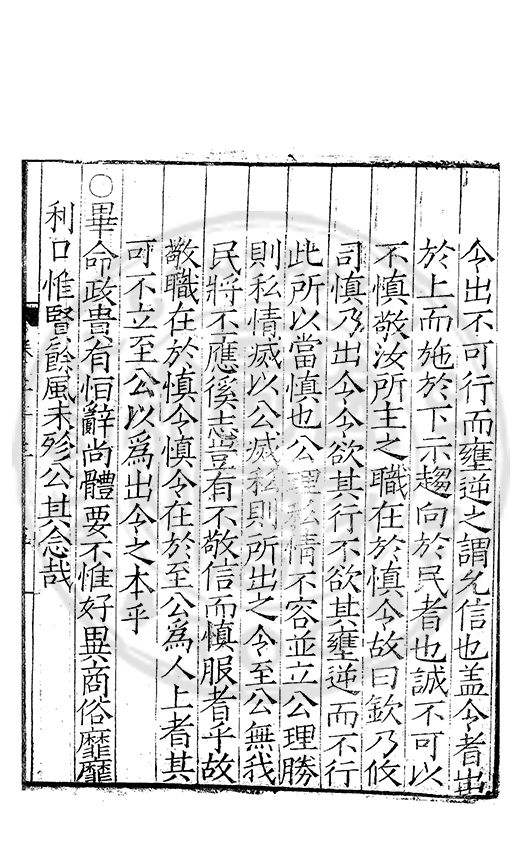 令出不可行而壅逆之謂允信也盖令者出
於上而施於下示趨向於民者也誠不可以
不慎敬汝所主之職在於慎令故曰欽乃攸
司慎乃出令令欲其行不欲其壅逆而不行
此所以當慎也公理私情不容並立公理勝
則私情滅以公滅私則所出之令至公無我
民將不應徯志豈有不敬信而慎服者乎故
敬職在於慎令慎令在於至公為人上者其
可不立至公以為出令之本乎
○畢命政貴有恒辭尚體要不惟好異商俗靡靡
利口惟賢餘風未殄公其念哉